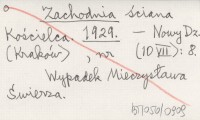 Zachodnia ściana
Kościelca. 1929. – Nowy Dz.
(Kraków), nr (10 VII): 8.
Wypadek Mieczysława
Świerza.
BT/050/0909